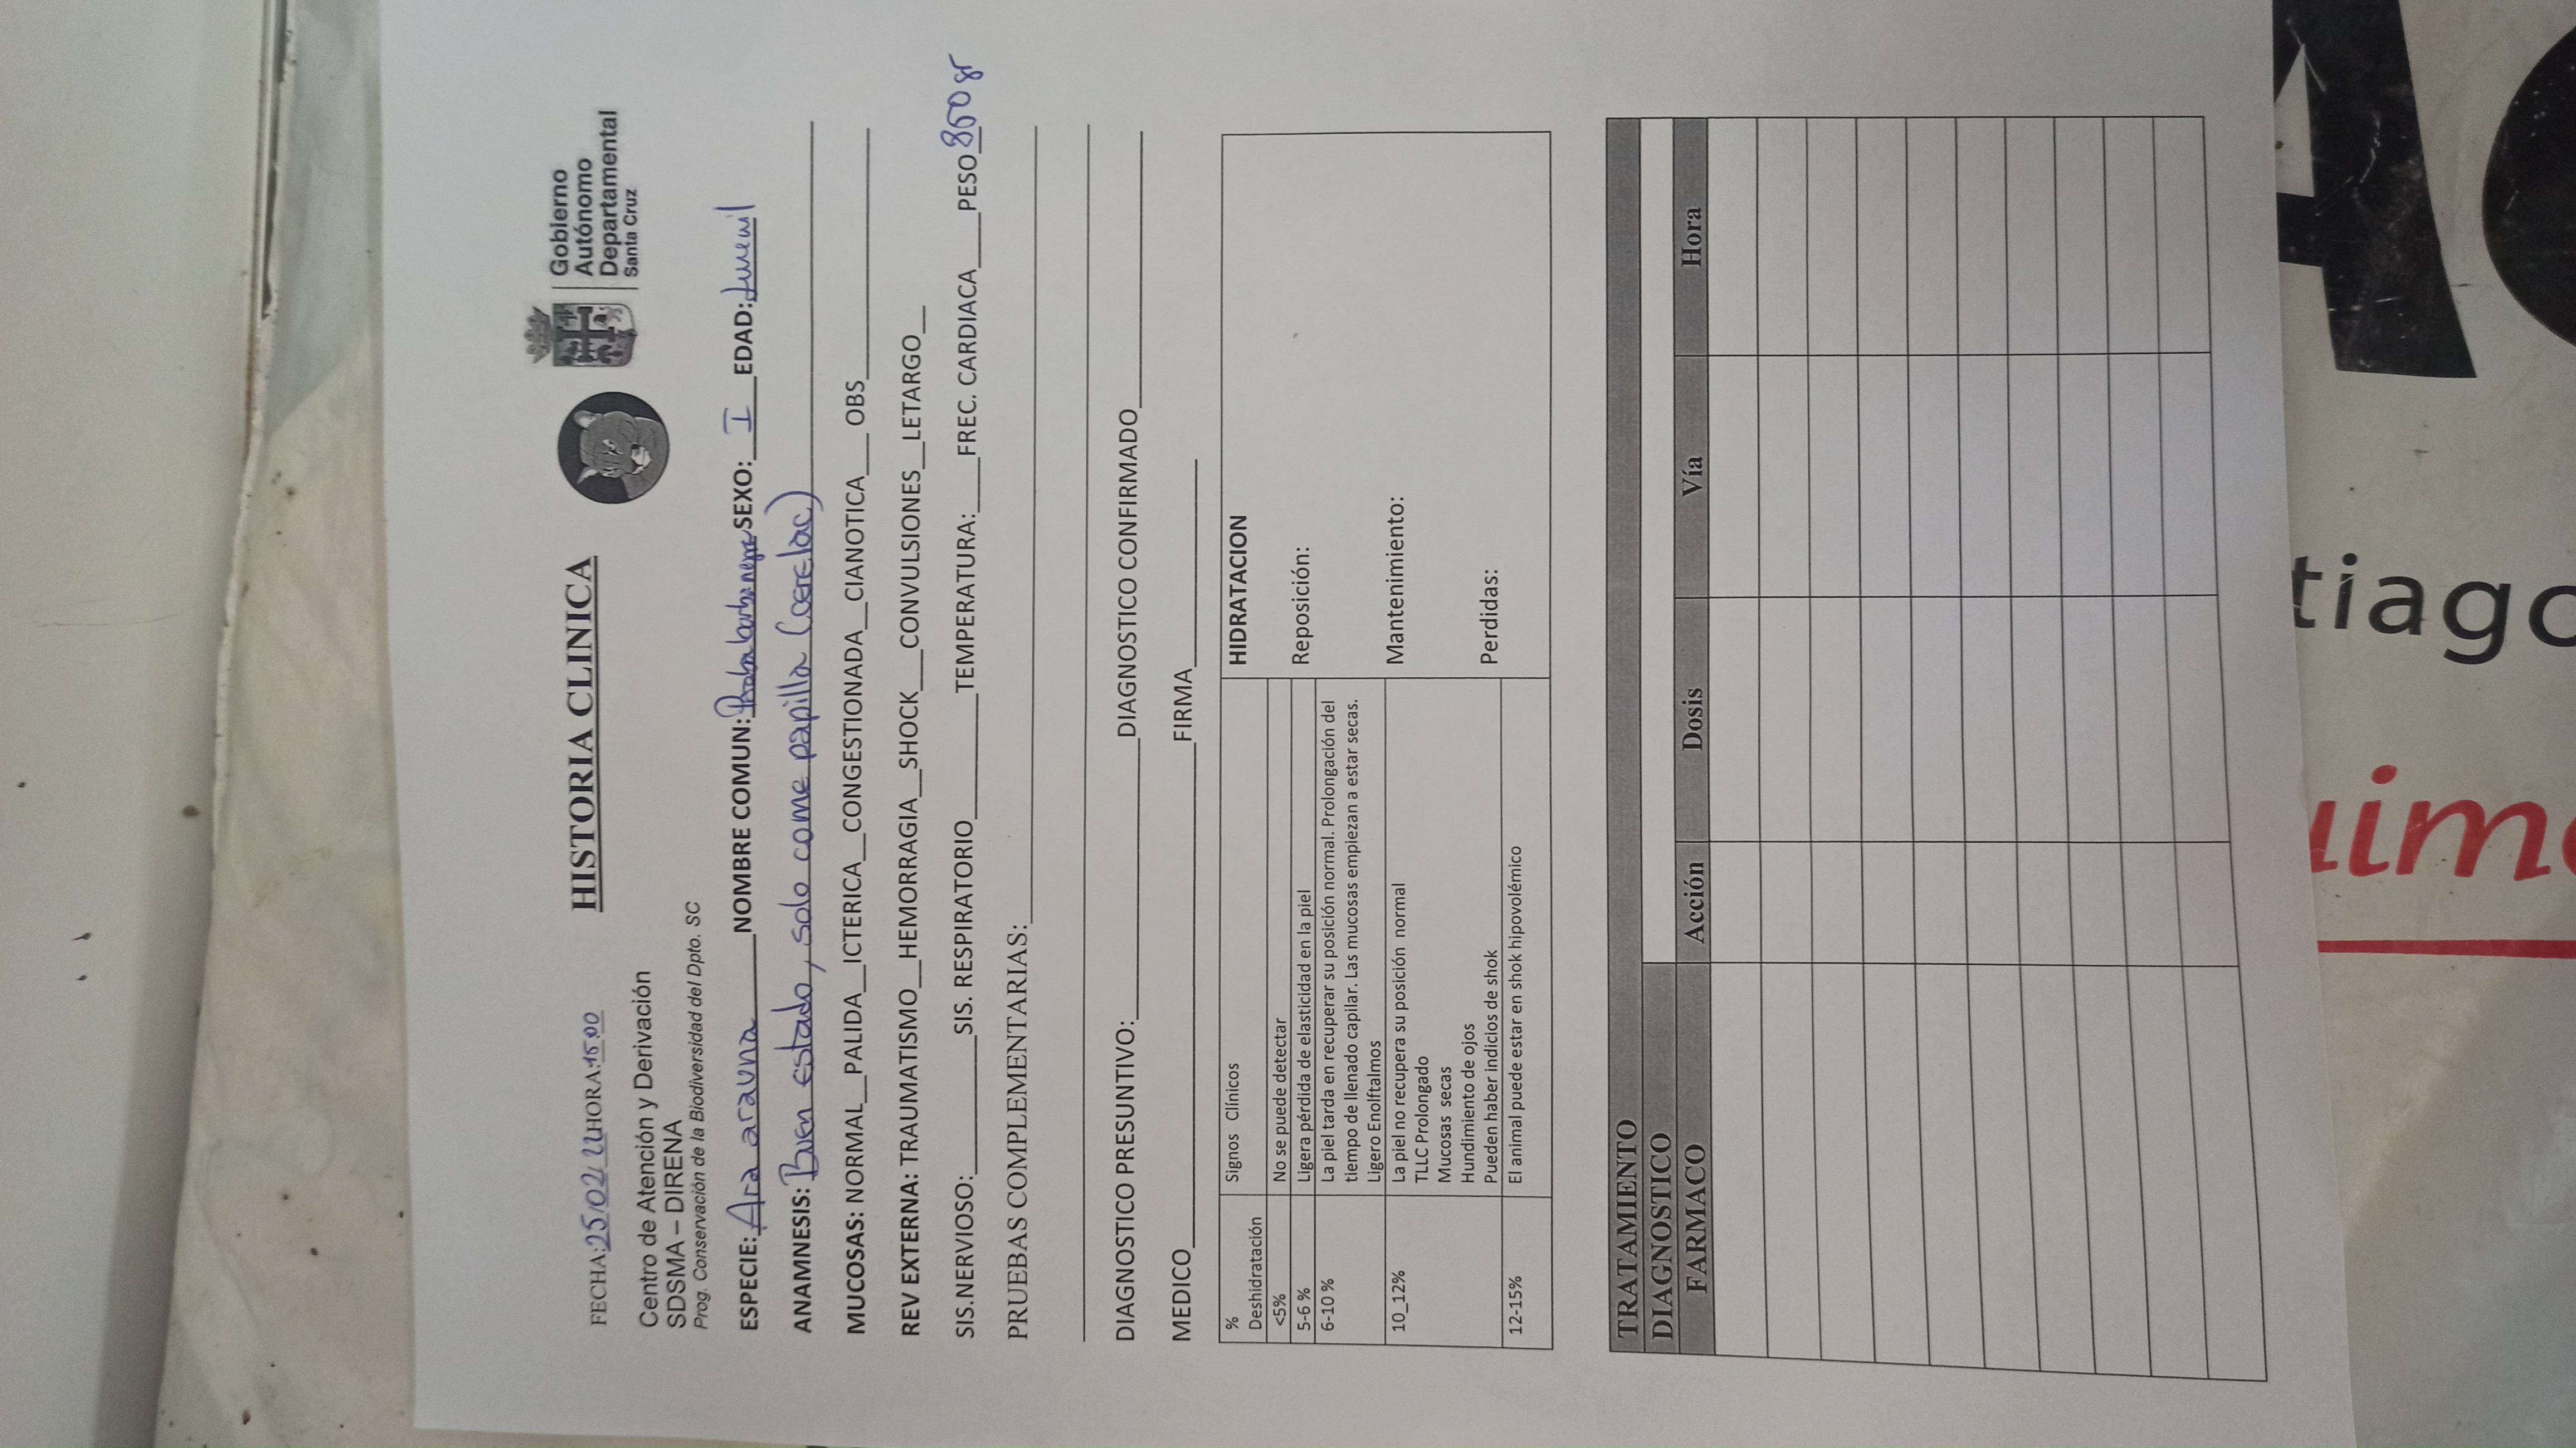 FECHA:25/02/22HORA:15:00
HISTORIA CLINICA
Gobierno
Autónomo
Departamental
Santa Cruz
Centro de Atención y Derivación
SDSMA – DIRENA
Prog. Conservación de la Biodiversidad del Dpto. SC
ESPECIE: Ara arauna NOMBRE COMUN: SEXO: I EDAD: Juvenil
ANAMNESIS: Buen estado, solo come papilla (cerelac)
MUCOSAS: NORMAL__PALIDA__ICTERICA__CONGESTIONADA__CIANOTICA___ OBS____
REV EXTERNA: TRAUMATISMO__HEMORRAGIA__SHOCK___CONVULSIONES__LETARGO__
SIS.NERVIOSO:__________SIS. RESPIRATORIO_________TEMPERATURA:____FREC. CARDIACA____PESO 850 gr
PRUEBAS COMPLEMENTARIAS:____
DIAGNOSTICO PRESUNTIVO:____DIAGNOSTICO CONFIRMADO____
MEDICO____FIRMA____
% Deshidratación Signos Clínicos
<5% No se puede detectar
5-6 % Ligera pérdida de elasticidad en la piel
6-10 % La piel tarda en recuperar su posición normal. Prolongación del
tiempo de llenado capilar. Las mucosas empiezan a estar secas.
Ligero Enolftalmos
10_12% La piel no recupera su posición normal
TLLC Prolongado
Mucosas secas
Hundimiento de ojos
Pueden haber indicios de shok
12-15% El animal puede estar en shok hipovolémico
HIDRATACION
Reposición:
Mantenimiento:
Perdidas:
TRATAMIENTO
DIAGNOSTICO
FARMACO Acción Dosis Vía Hora
tiago